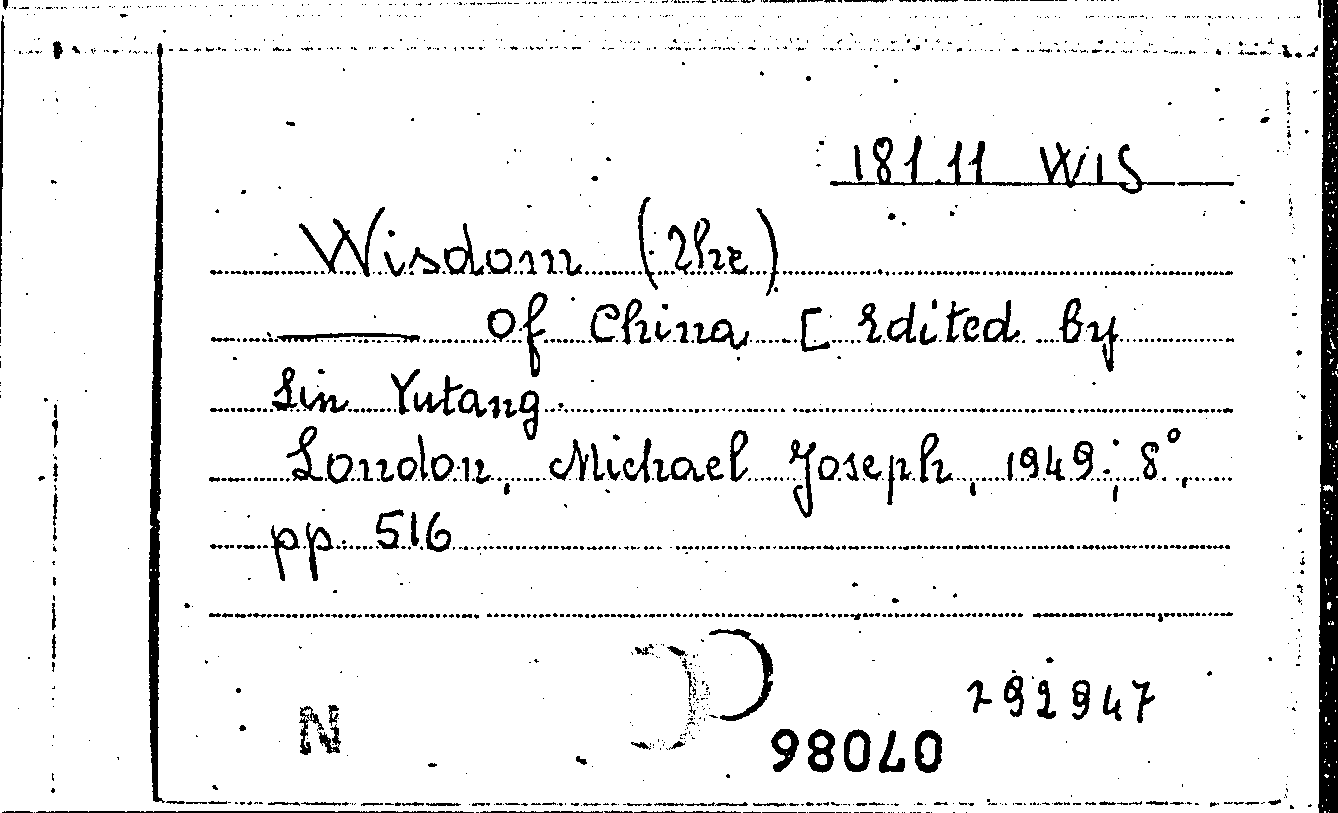 181.11 WIS
Wisdom (The)
—— of China [ Edited by
Lin Yutang.
London, Michael Joseph, 1949; 8°,
pp. 516
292947
N 07086